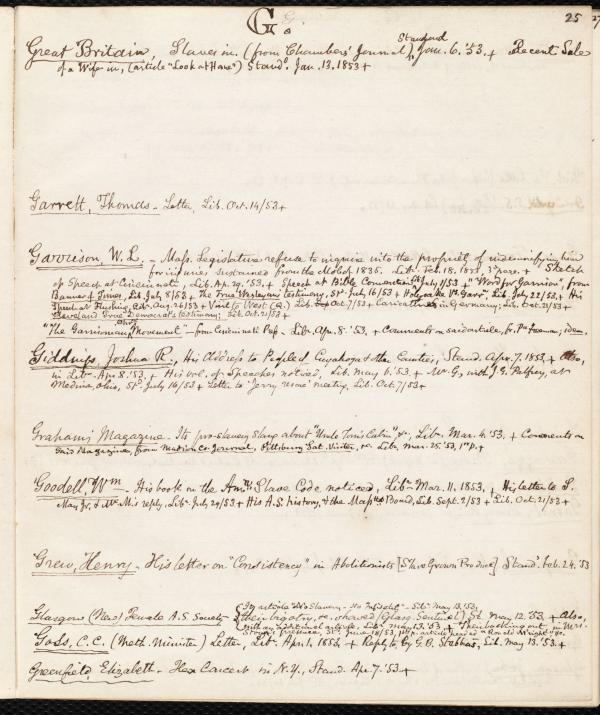 G.
25
Great Britain, Slaves in, (from Chambers' Journal), Standard Jan. 6. '53. + Recent Sale
of a Wife in, (article "Look at Home") Stand. Jan. 13. 1853 +
Garrett, Thomas - Letter, Lib. Oct. 14/53 +
Garrison, W. L. - Mass. Legislature refuse to inquire into the propriety of indemnifying him
for injuries sustained from the Mob of 1835. Lib. Feb. 18. 1853, 3d page. + Sketch
of Speech at Cincinnati, Lib. Ap. 29. '53. + Speech at Bible Convention, Lib. July 1/53 + "Word for Garrison", from
Banner & Times, Lib. July 8/53 + The True Wesleyan's testimony, St. July 16/53 + Holyoake vs. Garr'n, Lib. July 22/53. + His
Speech at Flushing, Lib. Aug. 26/53 + Visit to West (a) Lib. Oct. 7/53 + Caricatured in Germany; Lib. Oct. 21/53 +
Cleveland True Democrat's testimony; Lib. Oct. 21/53 +
"The Garrisonian Movement" - from Cincinnati - Lib. Apr. 8. '53. + Comments on said article, fr. Pa. Freeman; idem.
Giddings, Joshua R., His Address to People of Cuyahoga & other Counties, Stand. Apr. 7. 1853. + Also,
in Lib. Apr. 8. '53. + His vol. of Speeches noticed, Lib. May 6. '53. + Mr. G., with J. G. Palfrey, at
Medina, Ohio, St. July 16/53 + Letter to "Jerry rescue" meeting, Lib. Oct. 7/53 +
Graham's Magazine - Its pro-slavery slang about "Uncle Tom's Cabin" &c., Lib. Mar. 4. '53. + Comments on
said Magazine, from Madison co. Journal, Pittsburg Sat. Visiter, &c. Lib. Mar. 25. '53, 1st p. +
Goodell, Wm - His book on the Am. Slave Code noticed, Lib. Mar. 11. 1853. + His letter to S.
May Jr. & Mr. M's reply, Lib. July 29/53 + His A.S. history, & the Mass. Board, Lib. Sept. 2/53 + Lib. Oct. 21/53 +
Grew, Henry - His letter on "Consistency" in Abolitionists [Slave Grown Produce] Stand. Feb. 24. '53
Its article "No Slavery - No Infidels" - Lib. May 13. '53.
Glasgow (New) Female A.S. Society - their bigotry, &c. showed (Glasg. Sentinel) St. May 12. '53 + Also,
with an additional article, Lib. May 13. '53. +
Goss, C. C. (Meth. Minister) Letter, Lib. Apr. 1, 1853. + Reply to, by G. B. Stebbins, Lib. May 13. '53. +
Greenfield, Elizabeth - Her Concert in N.Y., Stand. Apr. 7. '53. +